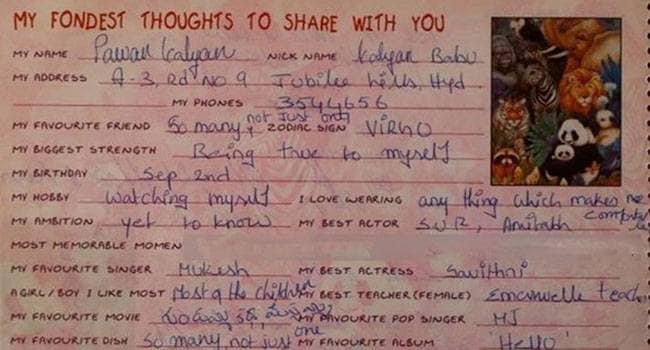 MY FONDEST THOUGHTS TO SHARE WITH YOU
MY NAME Pawan Kalyan NICK NAME Kalyan Babu
MY ADDRESS A-3, Rd No 9 Jubilee hills, Hyd
MY PHONES 3544656
MY FAVOURITE FRIEND So many, not just only ZODIAC SIGN VIRGO
MY BIGGEST STRENGTH Being true to myself
MY BIRTHDAY Sep 2nd
MY HOBBY watching myself I LOVE WEARING any thing which makes me
MY AMBITION yet to know MY BEST ACTOR S.V.R, Amitabh
MOST MEMORABLE MOMEN
MY FAVOURITE SINGER Mukesh MY BEST ACTRESS Savithri
A GIRL/BOY I LIKE MOST Most of the children MY BEST TEACHER (FEMALE)
MY FAVOURITE MOVIE MY FAVOURITE POP SINGER MJ
MY FAVOURITE DISH So many, not just one MY FAVOURITE ALBUM 'Hello'